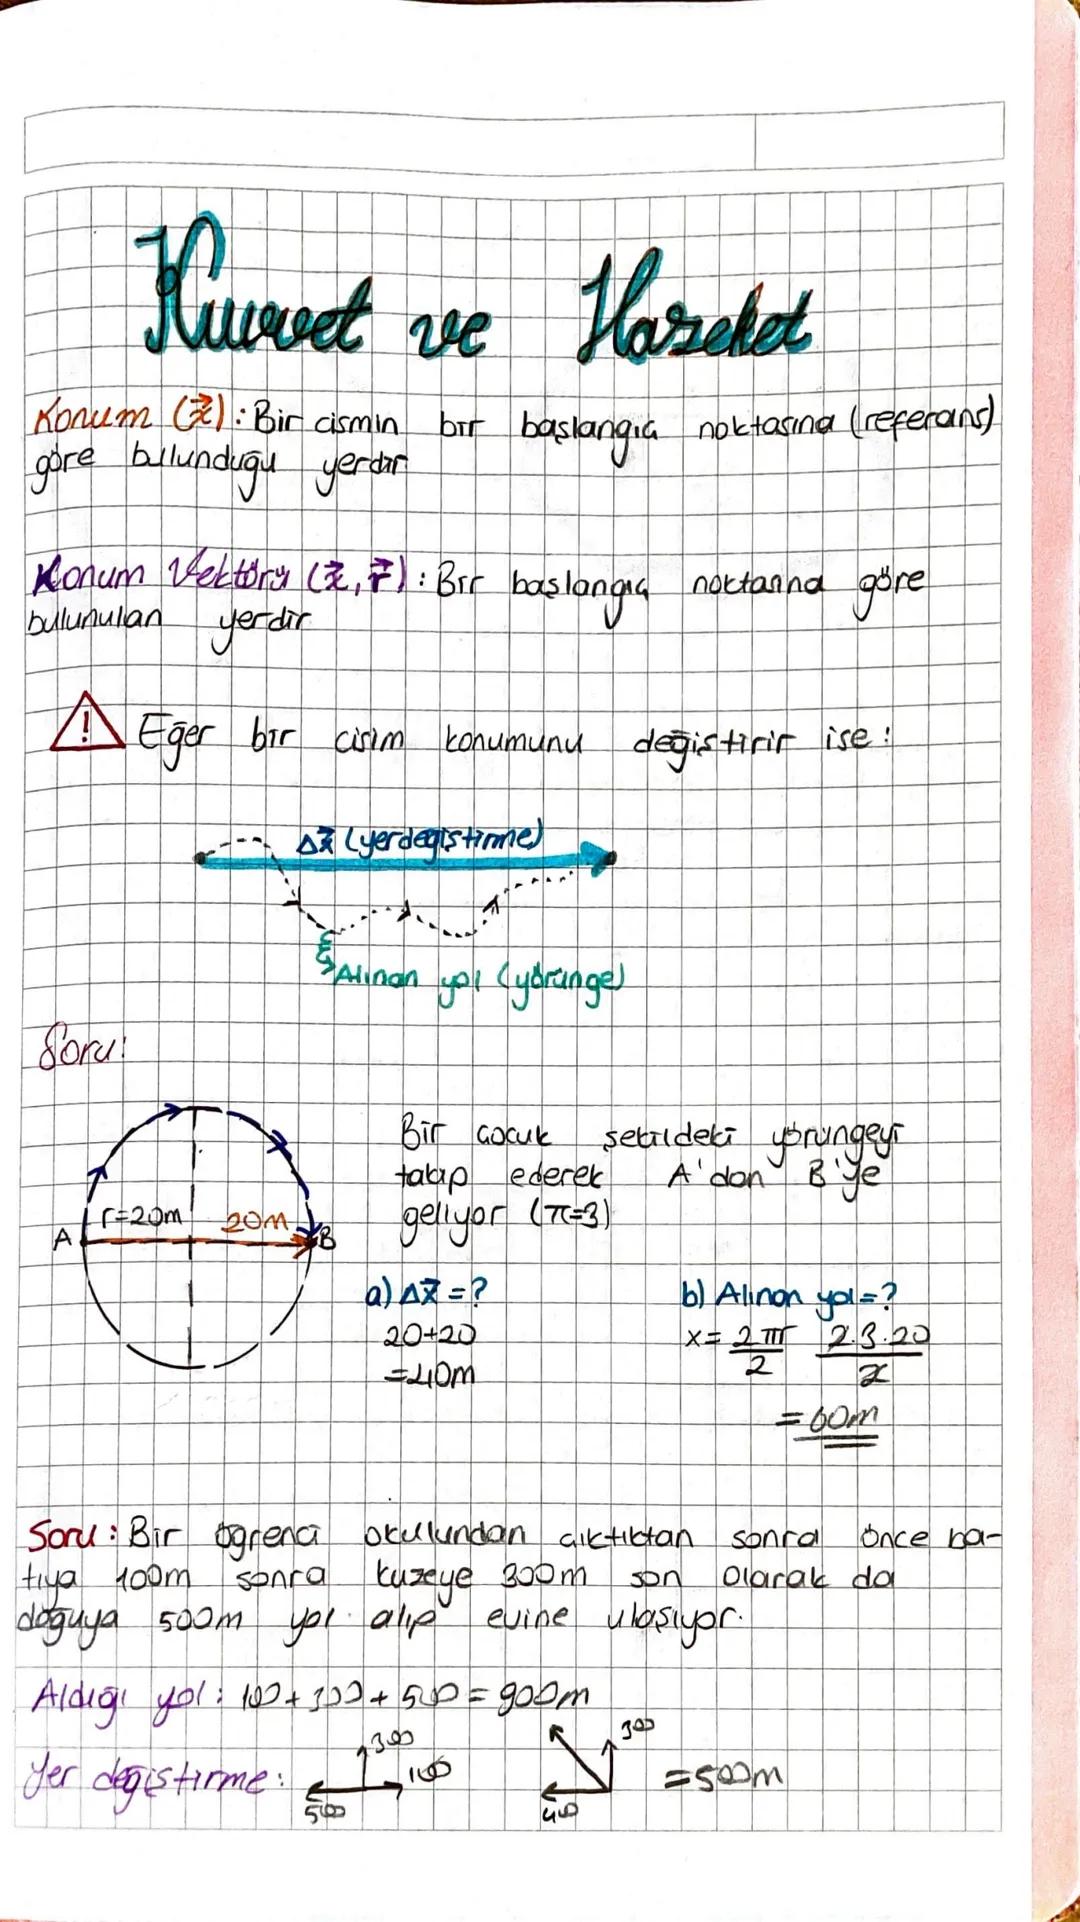 Kuvvet ve Hareket
Konum (x⃗): Bir cismin bir başlangıç noktasına (referans)
göre bulunduğu yerdir
Konum Vektörü (x⃗, r⃗): Bir başlangıç noktasına göre
bulunulan yerdir
! Eğer bir cisim konumunu değiştirir ise:
Δx⃗ (yerdeğiştirme)
Alınan yol (yörünge)
Soru:
Bir çocuk şekildeki yörüngeyi
takip ederek A'dan B'ye
geliyor (π=3)
A r=20m 20m B
a) Δx⃗ = ?
20+20
=40m
b) Alınan yol=?
x= 2πr/2 2.3.20/2
=60m
Soru: Bir öğrenci okulundan çıktıktan sonra önce ba-
tıya 100m sonra kuzeye 300m son olarak da
doğuya 500m yol alıp evine ulaşıyor.
Aldığı yol: 100+300+500=900m
Yer değiştirme: 300 100 500 300 400 =500m